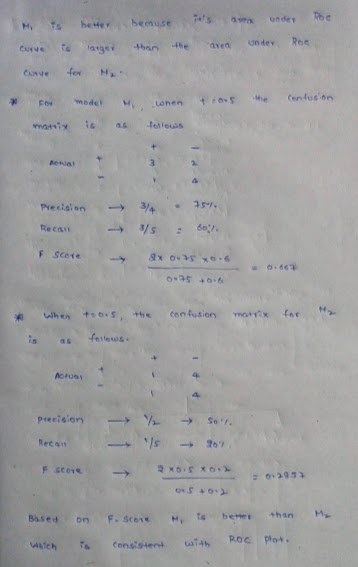 M₁ is better because it's area under Roc
curve is larger than the area under Roc
curve for M₂.
* For model M₁, when t = 0.5 the confusion
matrix is as follows
+ -
Actual + 3 2
- 1 4
Precision → 3/4 = 75%.
Recall → 3/5 = 60%.
F Score → 2 x 0.75 x 0.6 = 0.667
0.75 + 0.6
* When t = 0.5, the confusion matrix for M₂
is as follows.
+ -
Actual + 1 4
- 1 4
precision → 1/2 → 50%.
Recall → 1/5 → 20%
F score → 2 x 0.5 x 0.2 = 0.2857
0.5 + 0.2
Based on F. Score M₁ is better than M₂
which is consistent with ROC Plot.